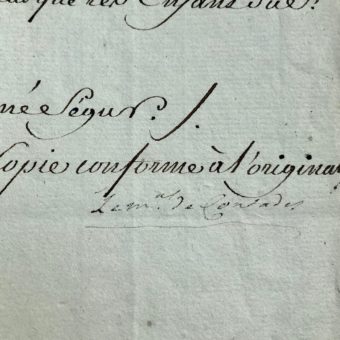 que les Enfans
né Ségur. /.
Copie conforme à l'origina
Le m.al de Contades